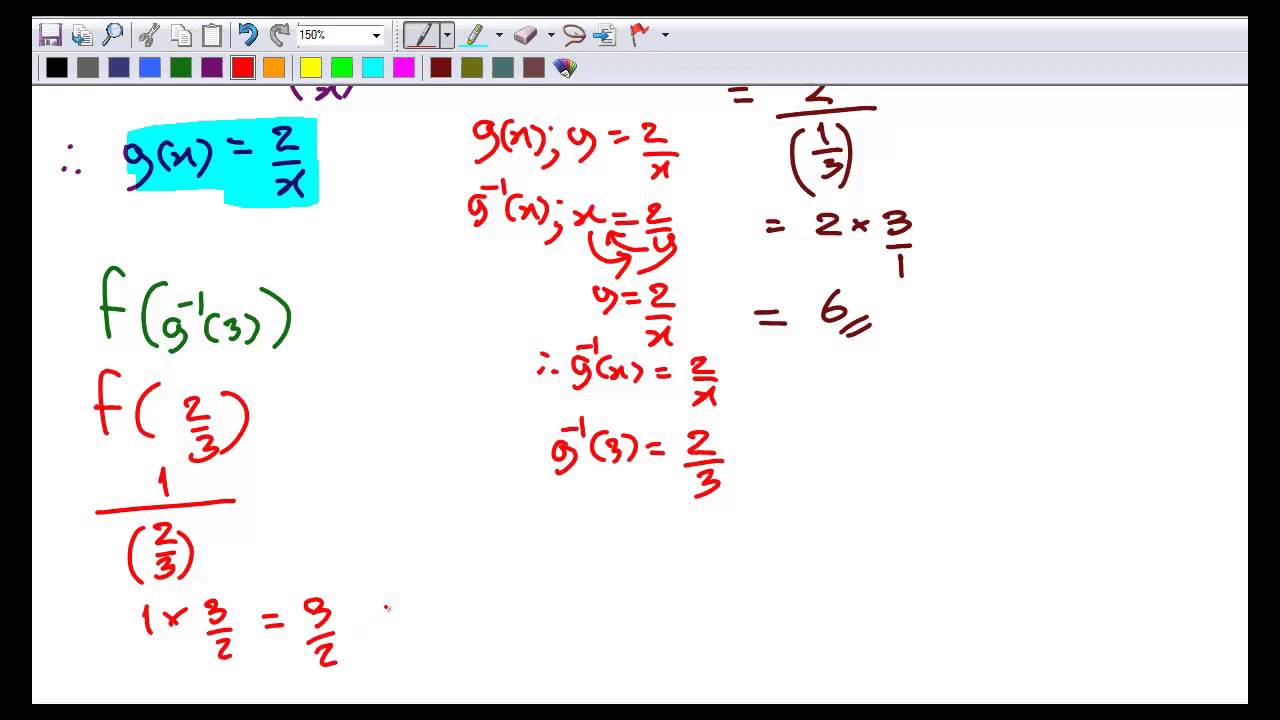 150%
(x)
∴ g(x) = 2/x
f(g⁻¹(3))
f(2/3)
1/(2/3)
1 × 3/2 = 3/2
g(x); y = 2/x
g⁻¹(x); x = 2/y
y = 2/x
∴ g⁻¹(x) = 2/x
g⁻¹(3) = 2/3
= 2/(1/3)
= 2 × 3/1
= 6